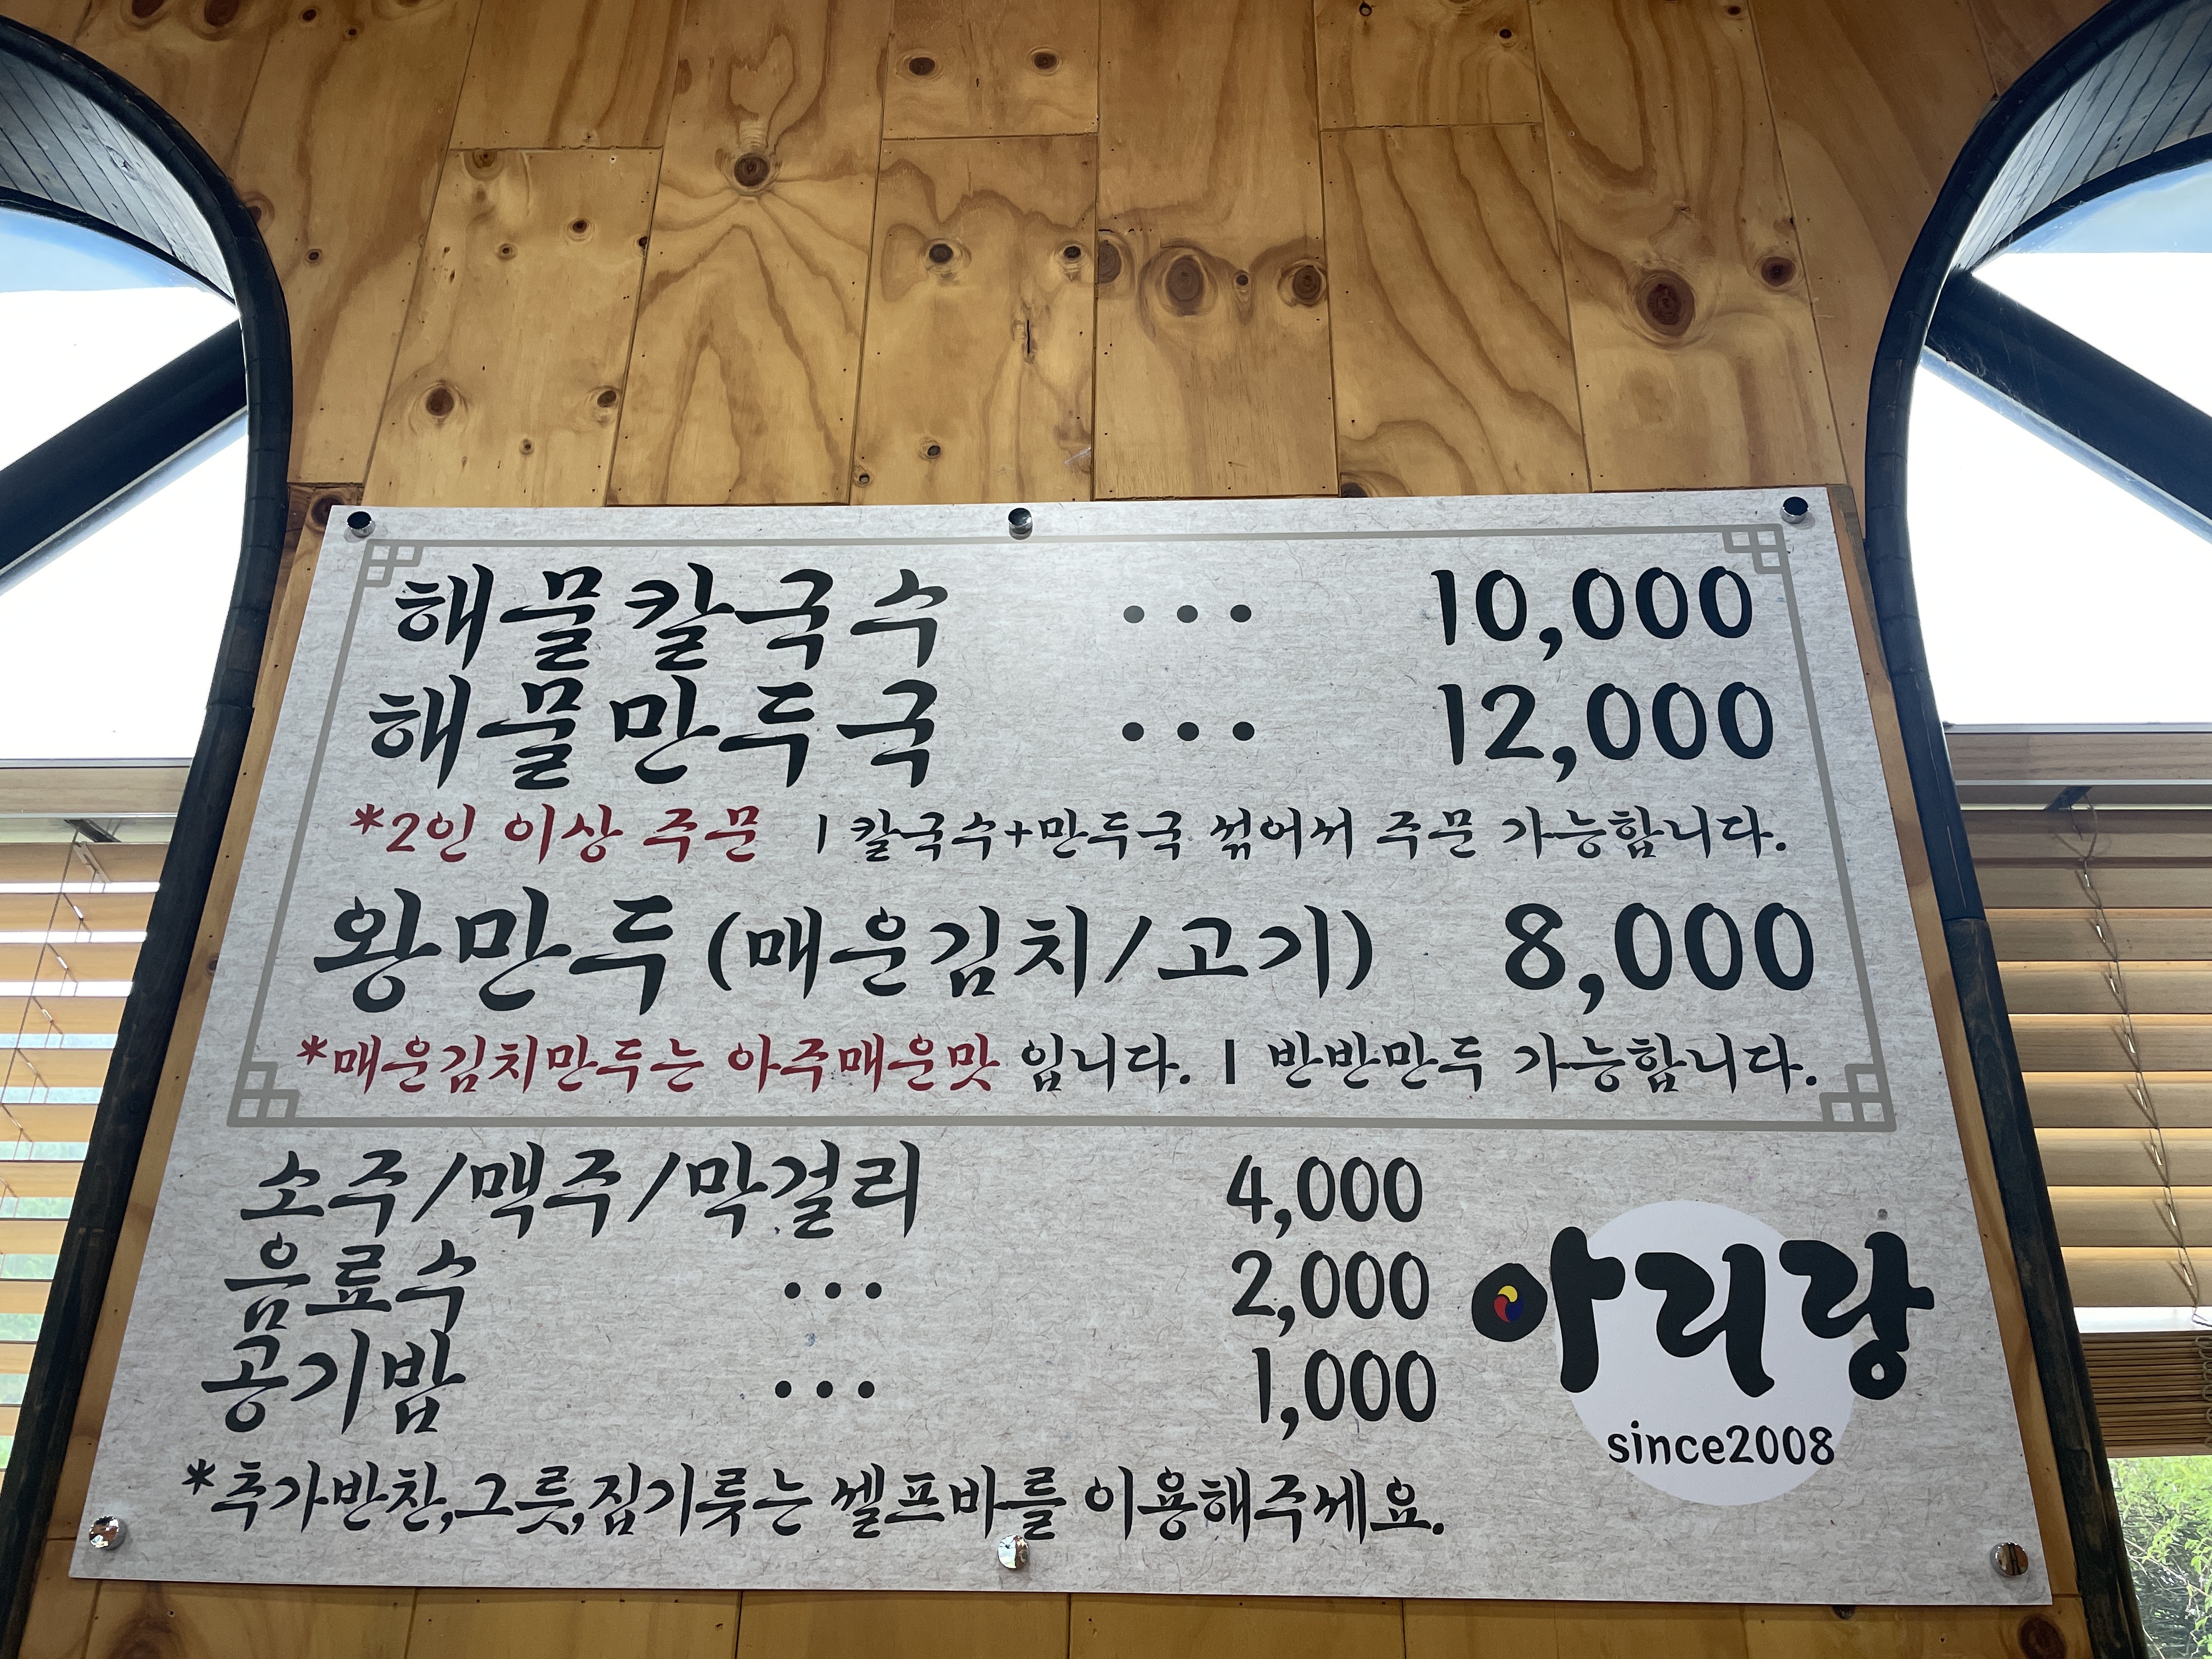 해물칼국수 ... 10,000
해물만두국 ... 12,000
*2인 이상 주문 | 칼국수+만두국 섞어서 주문 가능합니다.
왕만두 (매운김치/고기) 8,000
*매운김치만두는 아주매운맛 입니다. | 반반만두 가능합니다.
소주/맥주/막걸리 4,000
음료수 ... 2,000
공기밥 ... 1,000
*추가반찬,그릇,집기류는 셀프바를 이용해주세요.
아리랑
since2008